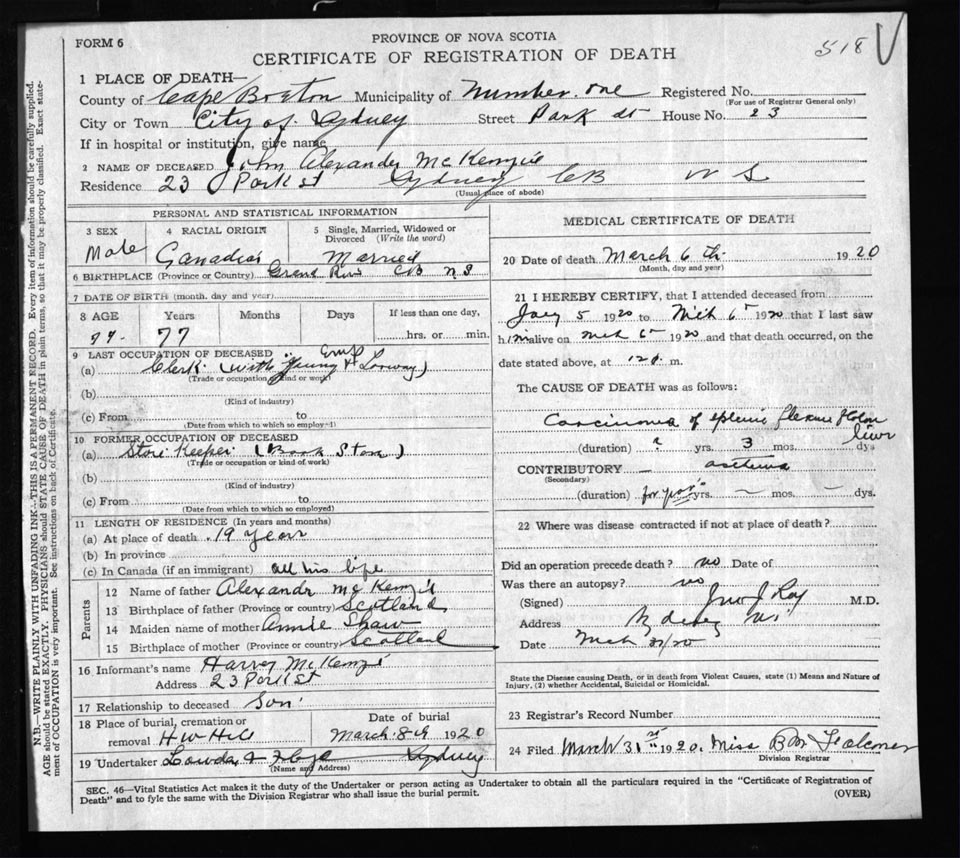 FORM 6
PROVINCE OF NOVA SCOTIA
CERTIFICATE OF REGISTRATION OF DEATH
518
1 PLACE OF DEATH—
County of Cape Breton Municipality of Number one Registered No.
(For use of Registrar General only)
City or Town City of Sydney Street Park St House No. 23
If in hospital or institution, give name
2 NAME OF DECEASED John Alexander McKenzie
Residence 23 Park St Sydney CB N S
(Usual place of abode)
PERSONAL AND STATISTICAL INFORMATION
3 SEX
Male
4 RACIAL ORIGIN
Canadian
5 Single, Married, Widowed or Divorced (Write the word)
Married
6 BIRTHPLACE (Province or Country) Grand River CB N S
7 DATE OF BIRTH (month, day and year)
8 AGE Years Months Days If less than one day,
77 hrs. or min.
9 LAST OCCUPATION OF DECEASED
(a) Clerk (with Young & Lorway)
(Trade or occupation, kind or work)
(b)
(Kind of industry)
(c) From to
(Date from which to which so employed)
10 FORMER OCCUPATION OF DECEASED
(a) Store Keeper (Book Store)
(Trade or occupation or kind of work)
(b)
(Kind of industry)
(c) From to
(Date from which to which so employed)
11 LENGTH OF RESIDENCE (In years and months)
(a) At place of death 19 years
(b) In province
(c) In Canada (if an immigrant) all his life
Parents
12 Name of father Alexander McKenzie
13 Birthplace of father (Province or country) Scotland
14 Maiden name of mother Annie Shaw
15 Birthplace of mother (Province or country) Scotland
16 Informant's name Harvey McKenzie
Address 23 Park St
17 Relationship to deceased Son
18 Place of burial, cremation or
removal H W Hill
Date of burial
March 8th 1920
19 Undertaker Sydney
(Name and Address)
MEDICAL CERTIFICATE OF DEATH
20 Date of death March 6th 1920
(Month, day and year)
21 I HEREBY CERTIFY, that I attended deceased from
Jany 5 1920 to Mch 6 1920 that I last saw
him alive on Mch 6 1920 and that death occurred, on the
date stated above, at 12 m.
The CAUSE OF DEATH was as follows:
Carcinoma of splenic flexure & colon
liver
(duration) ? yrs. 3 mos. dys
CONTRIBUTORY — asthma
(Secondary)
(duration) for years yrs. — mos. — dys.
22 Where was disease contracted if not at place of death?
Did an operation precede death? no Date of
Was there an autopsy? no
(Signed) Jno J Roy M.D.
Address Sydney N S
Date Mch /20
State the Disease causing Death, or in death from Violent Causes, state (1) Means and Nature of
Injury, (2) whether Accidental, Suicidal or Homicidal.
23 Registrar's Record Number
24 Filed March 31st 1920. Miss B M
Division Registrar
SEC. 46—Vital Statistics Act makes it the duty of the Undertaker or person acting as Undertaker to obtain all the particulars required in the "Certificate of Registration of
Death" and to fyle the same with the Division Registrar who shall issue the burial permit.
(OVER)
N.B.—WRITE PLAINLY WITH UNFADING INK—THIS IS A PERMANENT RECORD. Every item of information should be carefully supplied.
AGE should be stated EXACTLY. PHYSICIANS should STATE CAUSE OF DEATH in plain terms, so that it may be properly classified. Exact state-
ment of OCCUPATION is very important. See instructions on back of Certificate.